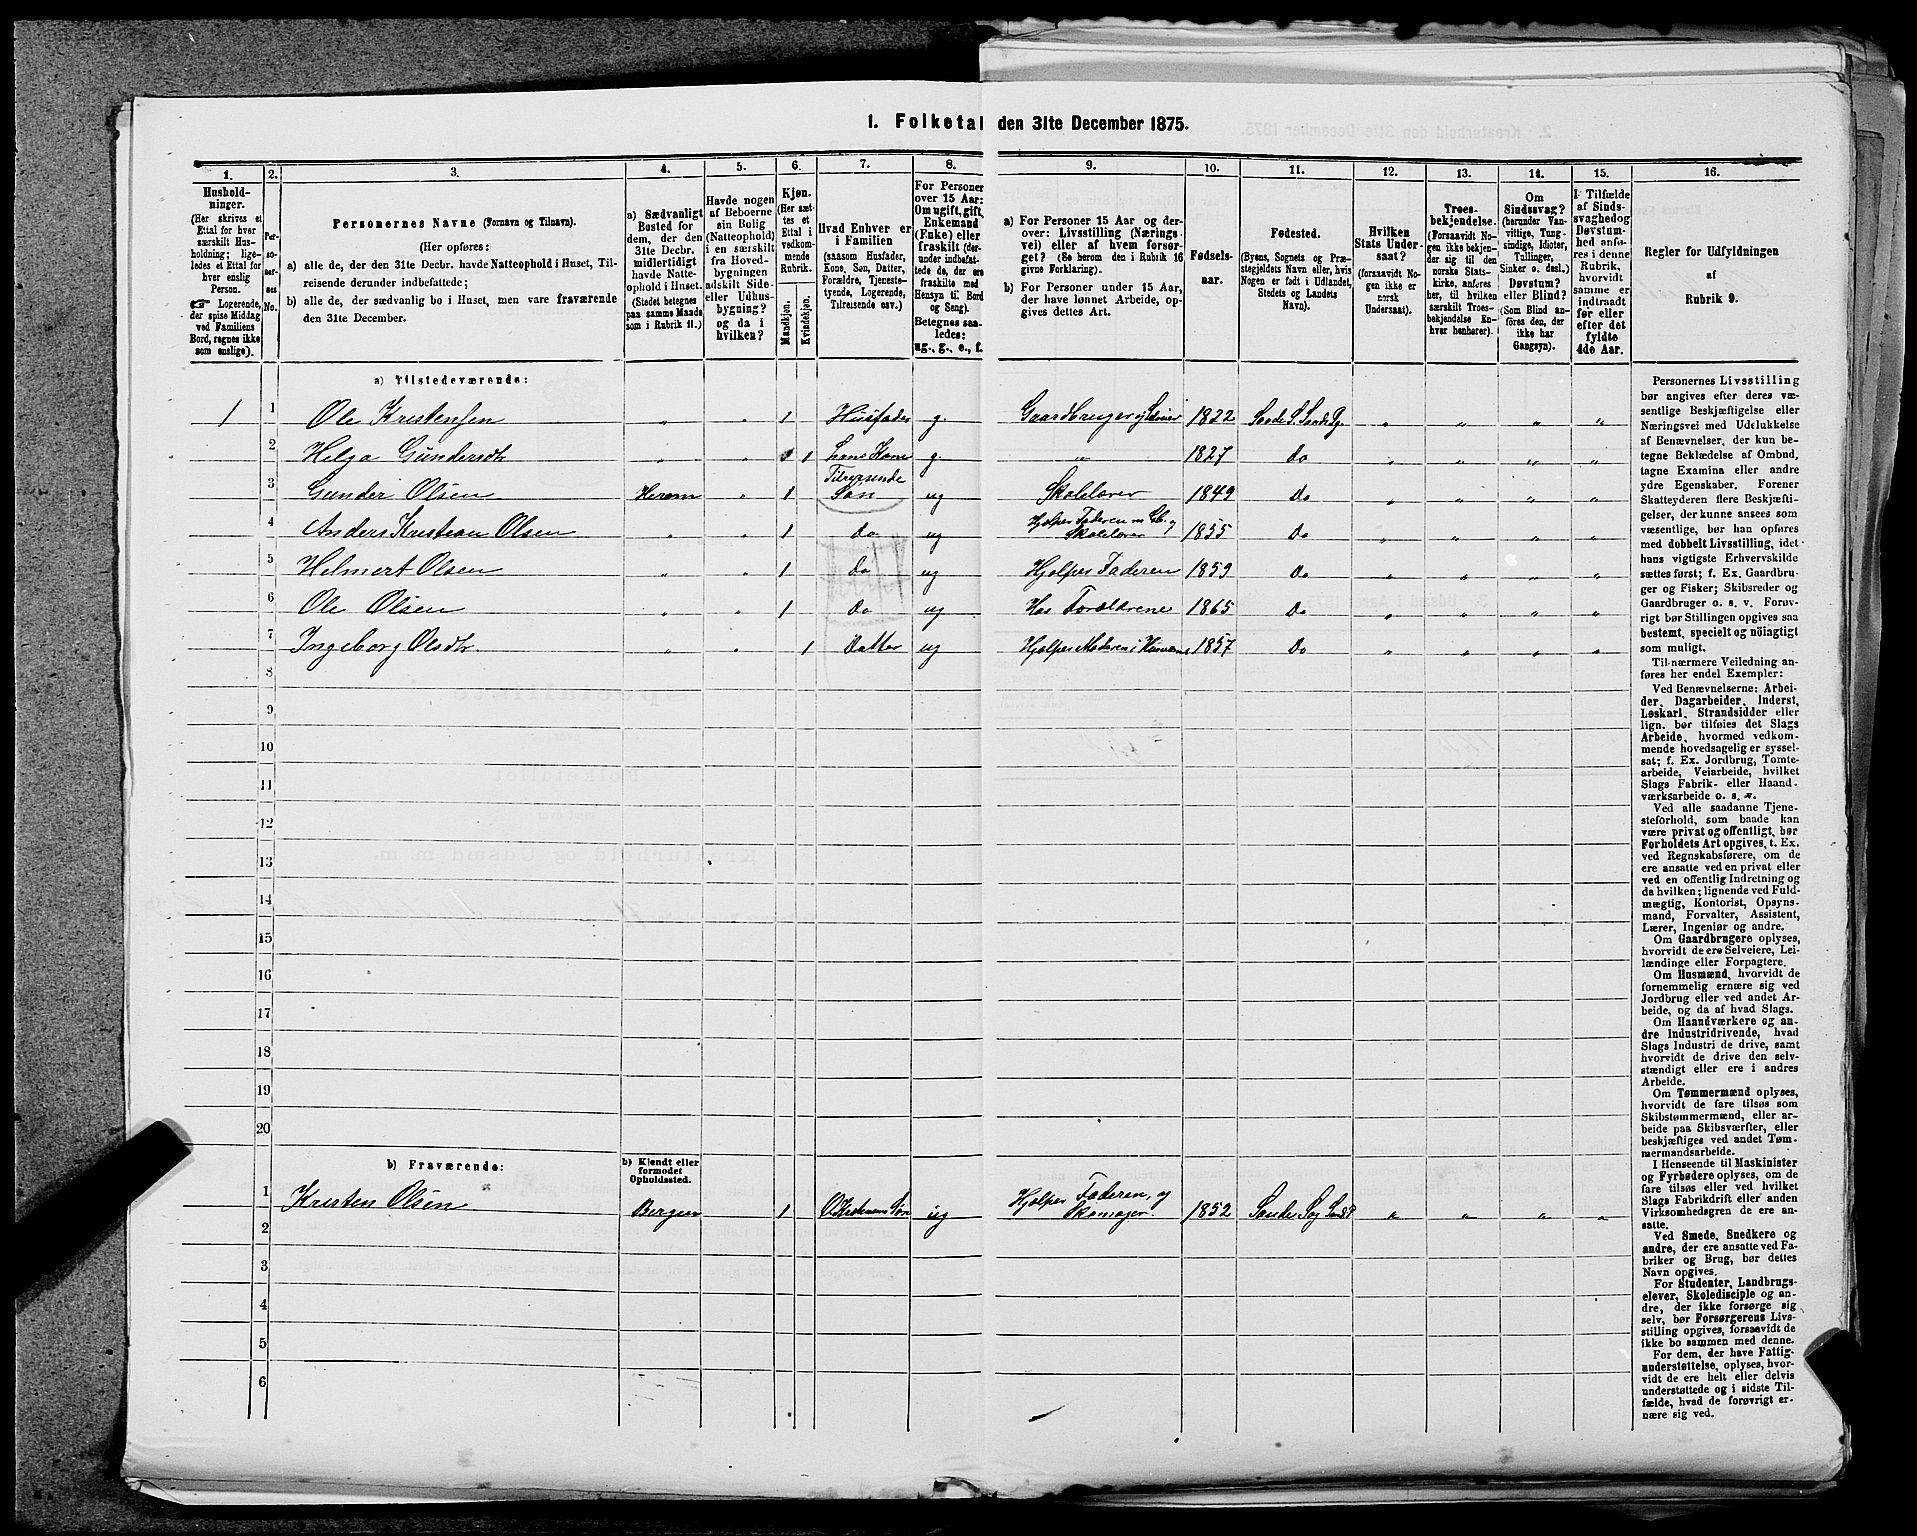 1. Folketal den 31te December 1875.
1.
2.
3.
4.
5.
6.
7.
8.
9.
10.
11.
12.
13.
14.
15.
16.
Hushold-
ninger.
(Her skrives et
Ettal for hver
særskilt Hus-
holdning; lige-
ledes et Ettal for
hver enslig
Person.
☞ Logerende,
der spise Middag
ved Familiens
Bord, regnes ikke
som enslige).
Per-
so-
ner-
nes
No.
Personernes Navne (Fornavn og Tilnavn).
(Her opføres:
a) alle de, der den 31te Decbr. havde Natteophold i Huset, Til-
reisende derunder indbefattede;
b) alle de, der sædvanlig bo i Huset, men vare fraværende
den 31te December.
a) Sædvanligt
Bosted for
dem, der den
31te Decbr.
midlertidigt
havde Natte-
ophold i Huset.
(Stedet betegnes
paa samme Maade
som i Rubrik 11.)
Havde nogen
af Beboerne
sin Bolig
(Natteophold)
i en særskilt
fra Hoved-
bygningen
adskilt Side-
eller Udhus-
bygning?
og da i
hvilken?
Kjøn.
(Her sæt-
tes et
Ettal i
vedkom-
mende
Rubrik.
Mandkjøn.
Kvindekjøn.
Hvad Enhver er
i Familien
(saasom Husfader,
Kone, Søn, Datter,
Forældre, Tjeneste-
tyende, Logerende,
Tilreisende osv.)
For Personer
over 15 Aar:
Om ugift, gift,
Enkemand
(Enke) eller
fraskilt (der-
under indbefat-
tede de, der ere
fraskilte med
Hensyn til Bord
og Seng).
Betegnes saa-
ledes:
ug., g., e., f.
a) For Personer 15 Aar og der-
over: Livsstilling (Nærings-
vei) eller af hvem forsør-
get? (Se herom den i Rubrik 16
givne Forklaring).
b) For Personer under 15 Aar,
der have lønnet Arbeide, op-
gives dettes Art.
Fødsels-
aar.
Fødested.
(Byens, Sognets og Præ-
stegjeldets Navn eller, hvis
Nogen er født i Udlandet,
Stedets og Landets
Navn).
Hvilken
Stats Under-
saat?
(forsaavidt No-
gen ikke er
norsk
Undersaat).
Troes-
bekjendelse.
(Forsaavidt No-
gen ikke bekjen-
der sig til den
norske Stats-
kirke, anføres
her, til hvilken
særskilt Troes-
bekjendelse En-
hver henhører).
Om
Sindssvag?
(herunder Van-
vittige, Tung-
sindige, Idioter,
Tullinger,
Sinker o. desl.)
Døvstum?
eller Blind?
(Som Blind an-
føres den, der
ikke har
Gangsyn).
I Tilfælde
af Sinds-
svaghed og
Døvstum-
hed anfø-
res i denne
Rubrik,
hvorvidt
samme er
indtraadt
før eller
efter det
fyldte
4de Aar.
Regler for Udfyldningen
af
Rubrik 9.
a) Tilstedeværende:
1 1 Ole Kristensen „ „ 1 Husfader g. Gaardbruger og Selveier 1822 Sande S. Sande Pg. „ „ „ „
2 Helga Gundersdtr „ „ 1 hans Kone g. „ 1827 Do „ „ „ „
Tilreisende
3 Gunder Olsen Herøen „ 1 Søn ug Skolelærer 1849 Do „ „ „ „
4 Anders Kristian Olsen „ „ 1 Do ug Hjælper Faderen m Gb. og
Skolelærer 1855 Do „ „ „ „
5 Helmert Olsen „ „ 1 Do ug Hjælper Faderen 1859 Do „ „ „ „
6 Ole Olsen „ „ 1 Do ug Hos Forældrene 1865 Do „ „ „ „
7 Ingeborg Olsdtr. „ „ 1 Datter ug Hjælper Moderen i Huset 1857 Do „ „ „ „
8
9
10
11
12
13
14
15
16
17
18
19
20
b) Fraværende:
b) Kjendt eller
formodet
Opholdssted.
1 Kristen Olsen Bergen 1 O. Kristensens Søn ug Hjælper Faderen, og
Skomager. 1852 Sande Sog Sande P „ „ „ „
2
3
4
5
6
Personernes Livsstilling
bør angives efter deres væ-
sentlige Beskjæftigelse eller
Næringsvei med Udelukkelse
af Benævnelser, der kun be-
tegne Beklædelse af Ombud,
tagne Examina eller andre
ydre Egenskaber. Forener
Skatteyderen flere Beskjæfti-
gelser, der kunne ansees som
væsentlige, bør han opføres
med dobbelt Livsstilling, idet
hans vigtigste Erhvervskilde
sættes først; f. Ex. Gaardbru-
ger og Fisker; Skibsreder og
Gaardbruger o. s. v. Forøv-
rigt bør Stillingen opgives saa
bestemt, specielt og nøiagtigt
som muligt.
Til nærmere Veiledning an-
føres her endel Exempler:
Ved Benævnelserne: Arbei-
der, Dagarbeider, Inderst,
Løskarl, Strandsidder eller
lign. bør tilføies det Slags
Arbeide, hvormed vedkom-
mende hovedsagelig er syssel-
sat; f. Ex. Jordbrug, Tomte-
arbeide, Veiarbeide, hvilket
Slags Fabrik- eller Haand-
værksarbeide o. s. v.
Ved alle saadanne Tjene-
steforhold, som baade kan
være privat og offentligt, bør
Forholdets Art opgives, t. Ex.
ved Regnskabsførere, om de
ere ansatte ved en privat eller
ved en offentlig Indretning og
da hvilken; lignende ved Fuld-
mægtig, Kontorist, Opsyns-
mand, Forvalter, Assistent,
Lærer, Ingeniør og andre.
Om Gaardbrugere oplyses,
hvorvidt de ere Selveiere, Lei-
lændinge eller Forpagtere.
Om Husmænd, hvorvidt de
fornemmelig ernære sig ved
Jordbrug eller ved andet Ar-
beide, og da af hvad Slags.
Om Haandværkere og an-
dre Industridrivende, hvad
Slags Industri de drive, samt
hvorvidt de drive den selv-
stændigt eller ere i andres
Arbeide.
Om Tømmermænd oplyses,
hvorvidt de fare tilsøs som
Skibstømmermænd, eller ar-
beide paa Skibsværfter, eller
beskjæftiges ved andet Tøm-
mermandsarbeide.
I Henseende til Maskinister
og Fyrbødere oplyses, om de
fare tilsøs eller ved hvilket
Slags Fabrikdrift eller anden
Virksomhedsgren de ere an-
satte.
Ved Smede, Snedkere og
andre, der ere ansatte ved Fa-
briker og Brug, bør dettes
Navn opgives.
For Studenter, Landbrugs-
elever, Skoledisciple og an-
dre, der ikke forsørge sig
selv, bør Forsørgerens Livs-
stilling opgives, forsaavidt de
ikke bo sammen med denne.
For dem, der have Fattig-
understøttelse, oplyses, hvor-
vidt de ere helt eller delvis
understøttede og i sidste Til-
fælde, hvad de forøvrigt er-
nære sig ved.